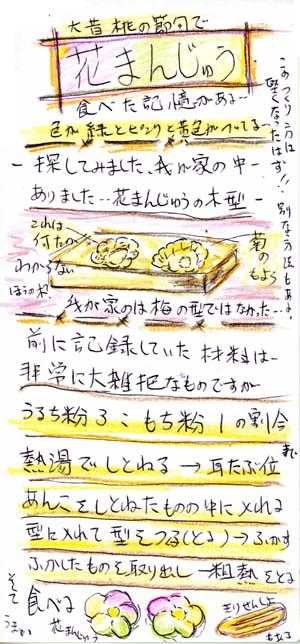 大昔桃の節句で
花まんじゅう
食べた記憶がある…
色が緑とピンクと黄色がついてる…
このつくり方は
堅くなったはず!!
別な方法もあるよ
- 探してみました、我が家の中 -
ありました…花まんじゅうの木型 -
これは
何なのか
わからない
ほうの木
菊の
もよう
我が家のは梅の型ではなかった…
前に記録していた材料は…
非常に大雑把なものですが
うるち粉3:もち粉1の割合
熱湯でしとねる→耳たぶ位まで
あんこをしとねたものの中に入れる
型に入れて型をつる(とる)→ふかす
ふかしたものを取り出し→粗熱をとる
そして
食べる
うまい
花まんじゅう
きりせんしょ
もある